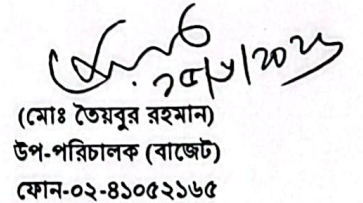 (মোঃ তৈয়বুর রহমান)
উপ-পরিচালক (বাজেট)
ফোন-০২-৪১০৫২১৬৫